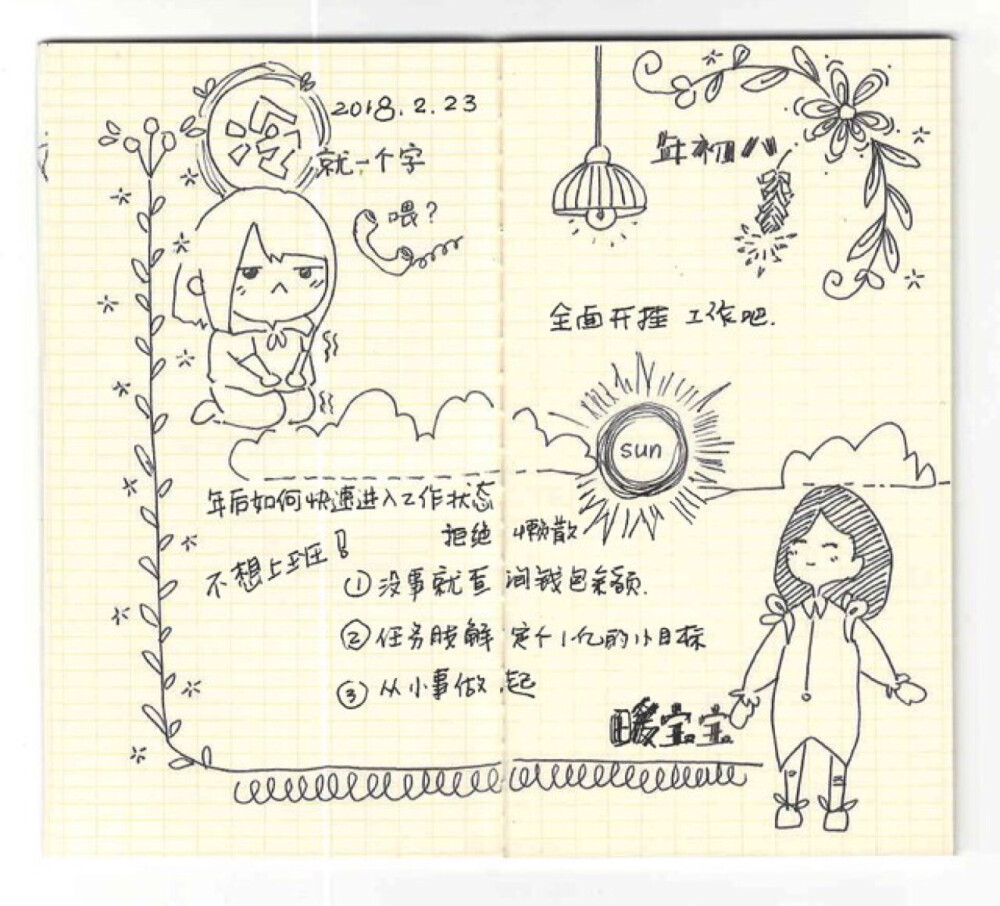 2018.2.23
冷
就一个字
喂?
年初八
全面开挂 工作吧.
sun
年后如何快速进入工作状态
拒绝 懒散
不想上班!
① 没事就查询钱包余额.
② 任务肢解 定个1亿的小目标
③ 从小事做起
暖宝宝